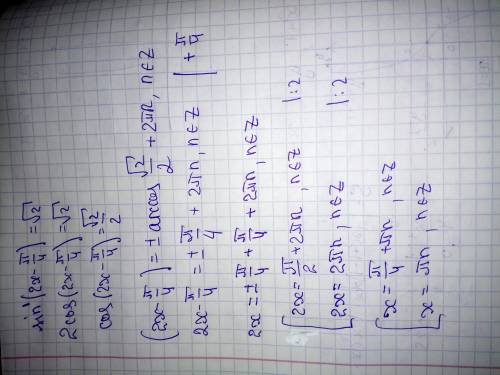 sin'(2x-π/4)=√2
2cos(2x-π/4)=√2
cos(2x-π/4)=√2/2
(2x-π/4)=±arccos √2/2+2πn, n∈Z
2x-π/4=±π/4+2πn, n∈Z |+π/4
2x=±π/4+π/4+2πn, n∈Z
[2x=π/2+2πn, n∈Z |:2
2x=2πn, n∈Z |:2
[x=π/4+πn, n∈Z
x=πn, n∈Z